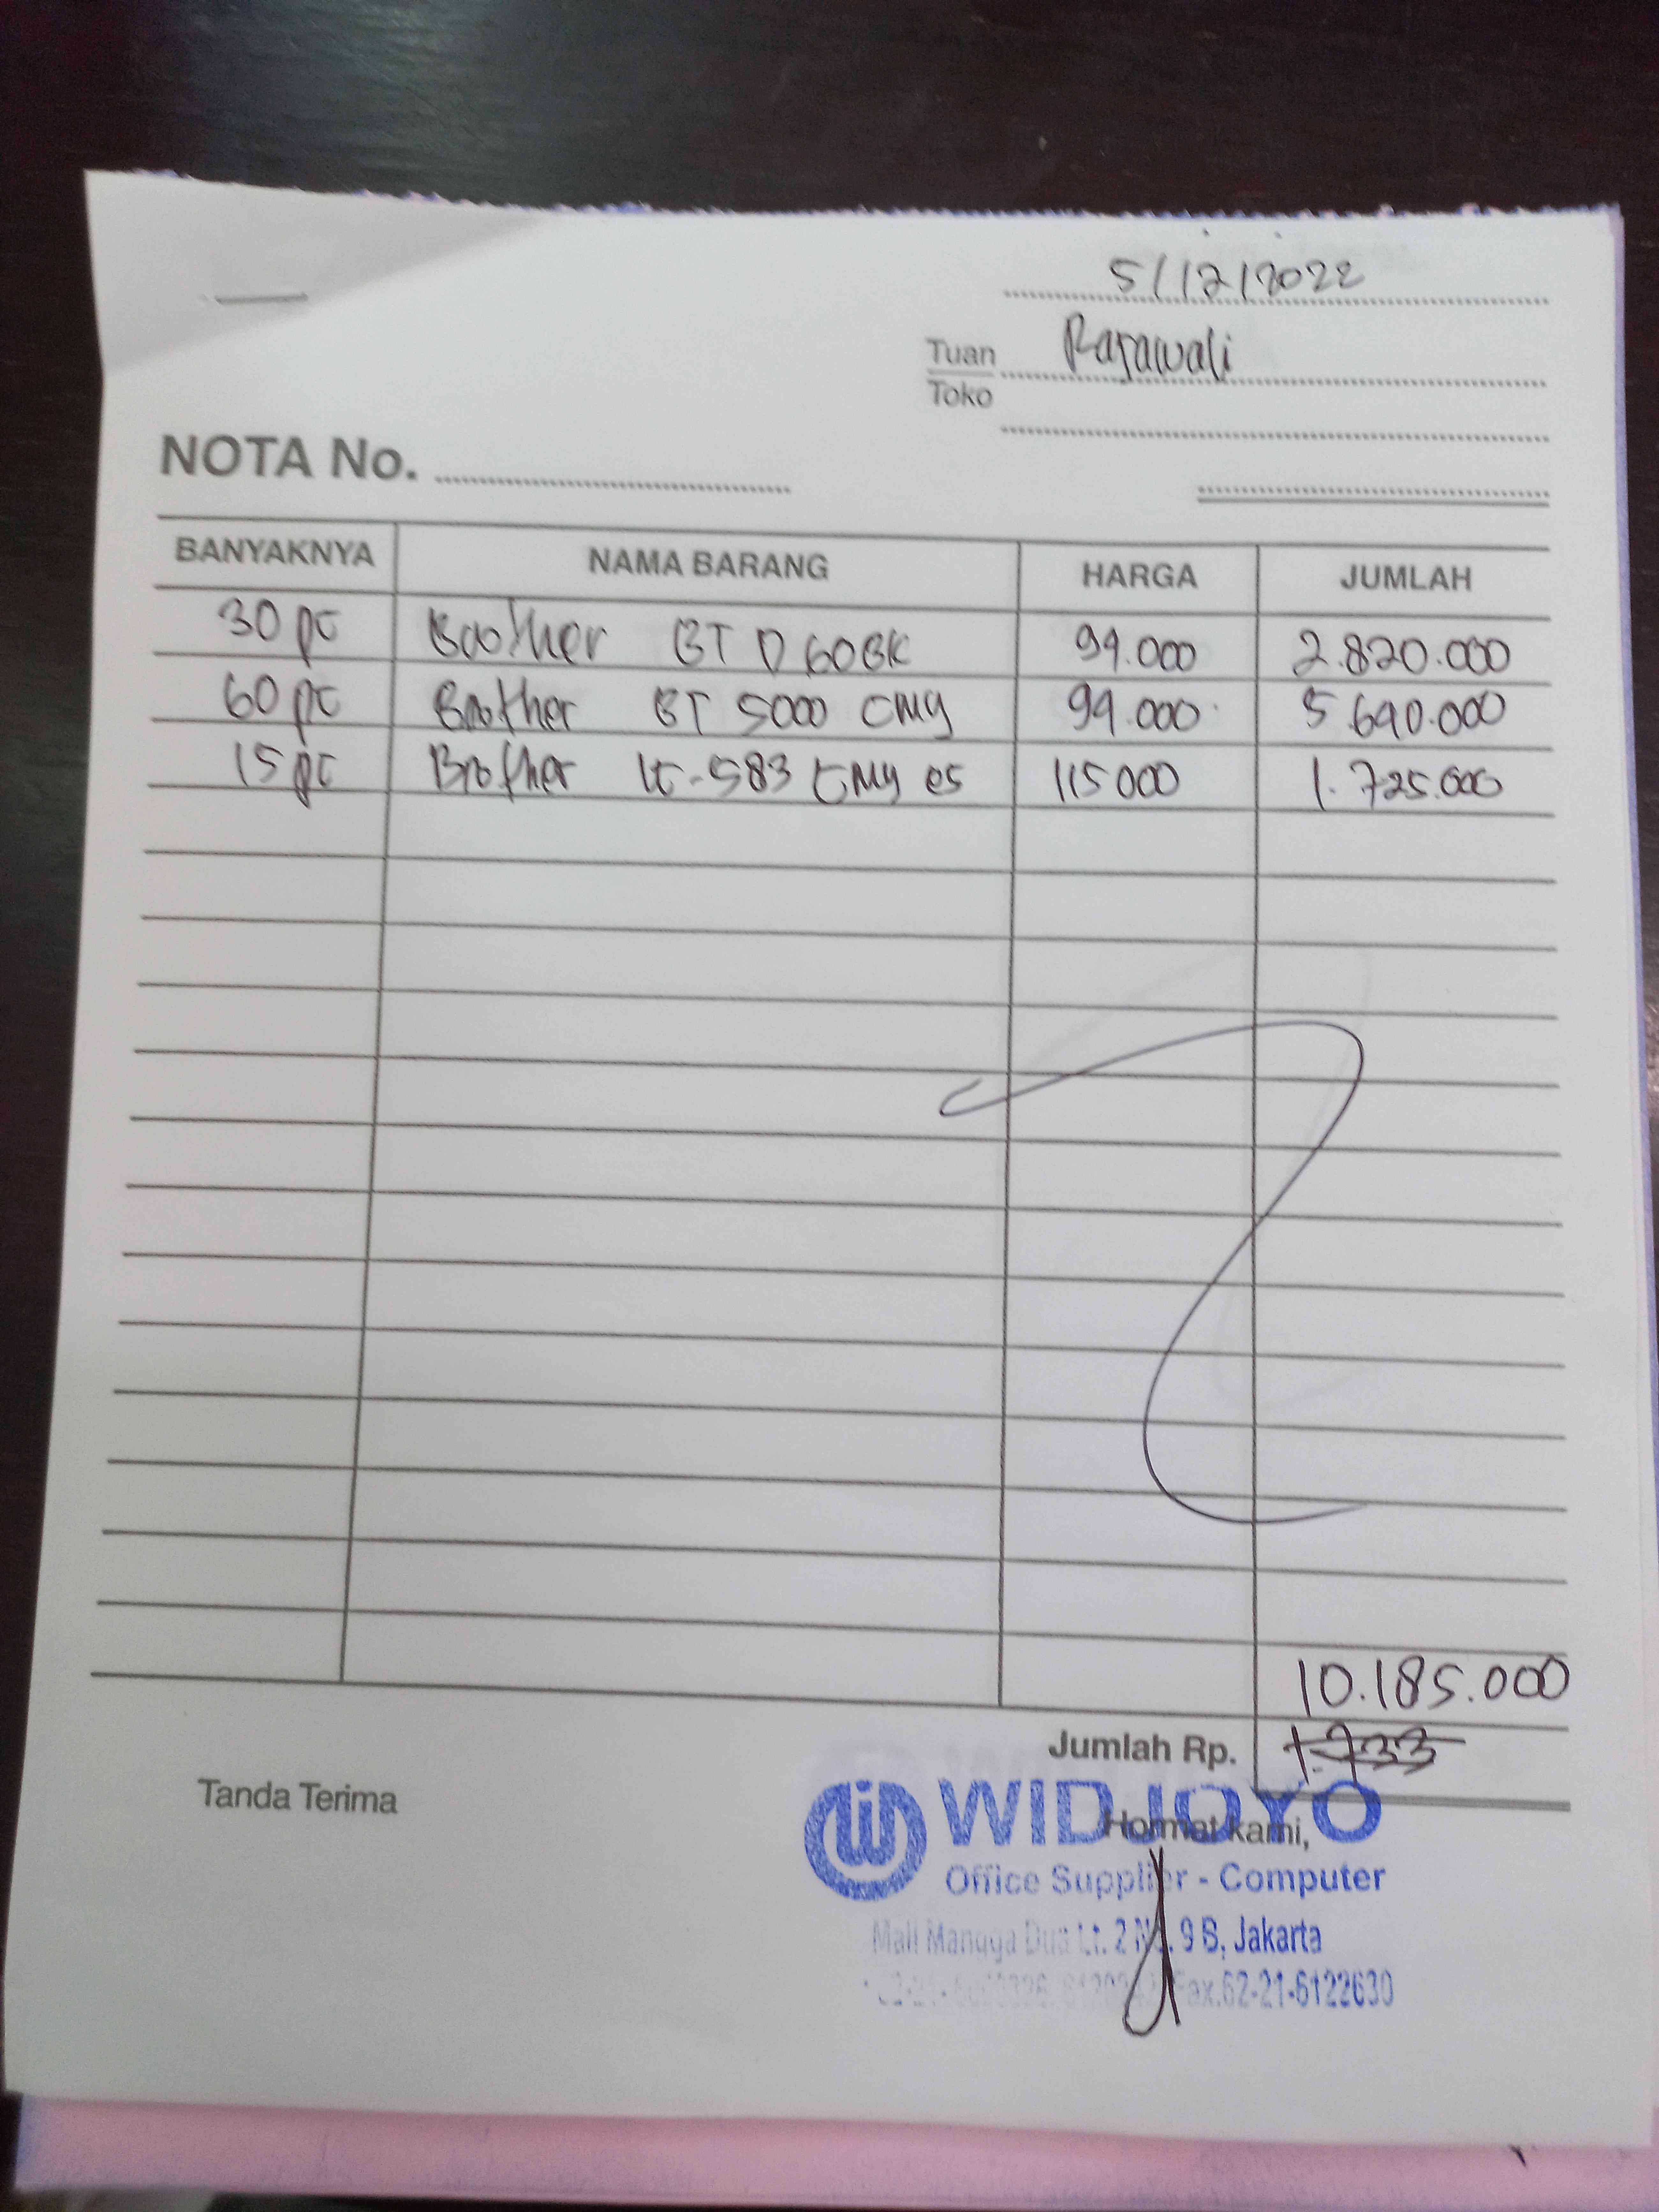 5/12/2022
Tuan Rajawali
Toko
NOTA No.
BANYAKNYA NAMA BARANG HARGA JUMLAH
30 pc Brother BT D60BK 94.000 2.820.000
60 pc Brother BT 5000 CMY 94.000 5.640.000
15 pc Brother lc-583 CMY es 115000 1.725.000
10.185.000
Jumlah Rp. 1.733
Tanda Terima
Hormat kami,
WIDJOYO
Office Supplier - Computer
Mall Mangga Dua Lt. 2 No. 9 B, Jakarta
Fax.62-21-6122630